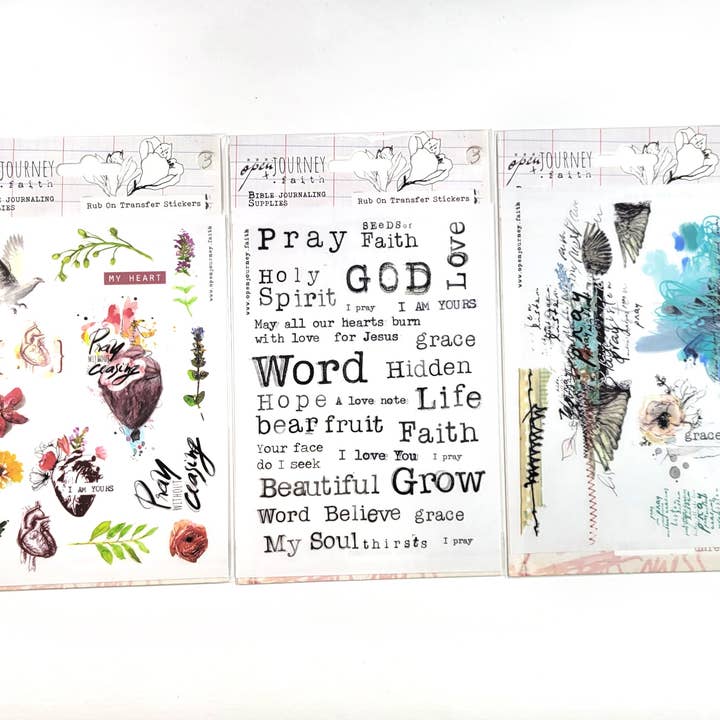 JOURNEY
.faith
BIBLE JOURNALING
Rub On Transfer Stickers
www.openjourney.faith
MY HEART
Pray
WITHOUT
ceasing
I AM YOURS
Pray
WITHOUT
ceasing
3
open JOURNEY
.faith
BIBLE JOURNALING
SUPPLIES
Rub On Transfer Stickers
www.openjourney.faith
Pray
SEEDS of
Faith
Love
Holy
Spirit
GOD
I pray
I AM YOURS
May all our hearts burn
with love for Jesus
grace
Word
Hidden
Hope
A love note
Life
bear fruit
Faith
Your face
do I seek
I love You
I pray
Beautiful
Grow
Word
Believe
grace
My Soul
thirsts
I pray
3
open JOURNEY
.faith
BIBLE JOURNALING
SUPPLIES
Rub On Transfer Stickers
www.openjourney.faith
pray
grace
pray